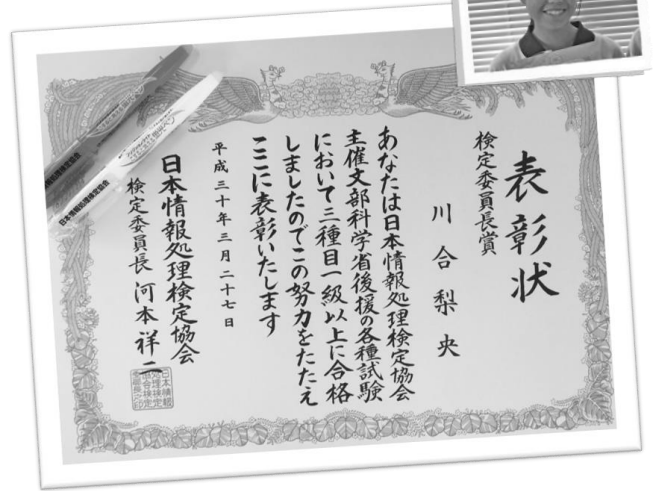 表彰状
検定委員長賞
川合梨央
あなたは日本情報処理検定協会
主催文部科学省後援の各種試験
において三種目一級以上に合格
しましたのでこの努力をたたえ
ここに表彰いたします
平成三十年三月二十七日
日本情報処理検定協会
検定委員長 河本祥二
日本情報処理検定協会